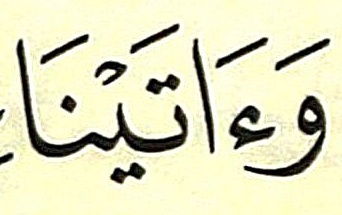 وَءَاتَيْنَا